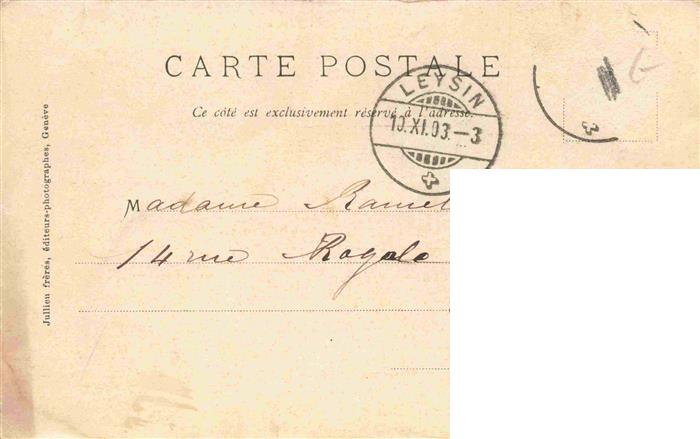 CARTE POSTALE
LEYSIN
Ce côté est exclusivement réservé à l'adresse.
10.XI.03.-3
Madame Ramel
14 rue Royale
Jullien frères, éditeurs-photographes, Genève